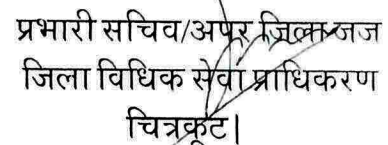 प्रभारी सचिव/अपर जिला जज
जिला विधिक सेवा प्राधिकरण
चित्रकूट|